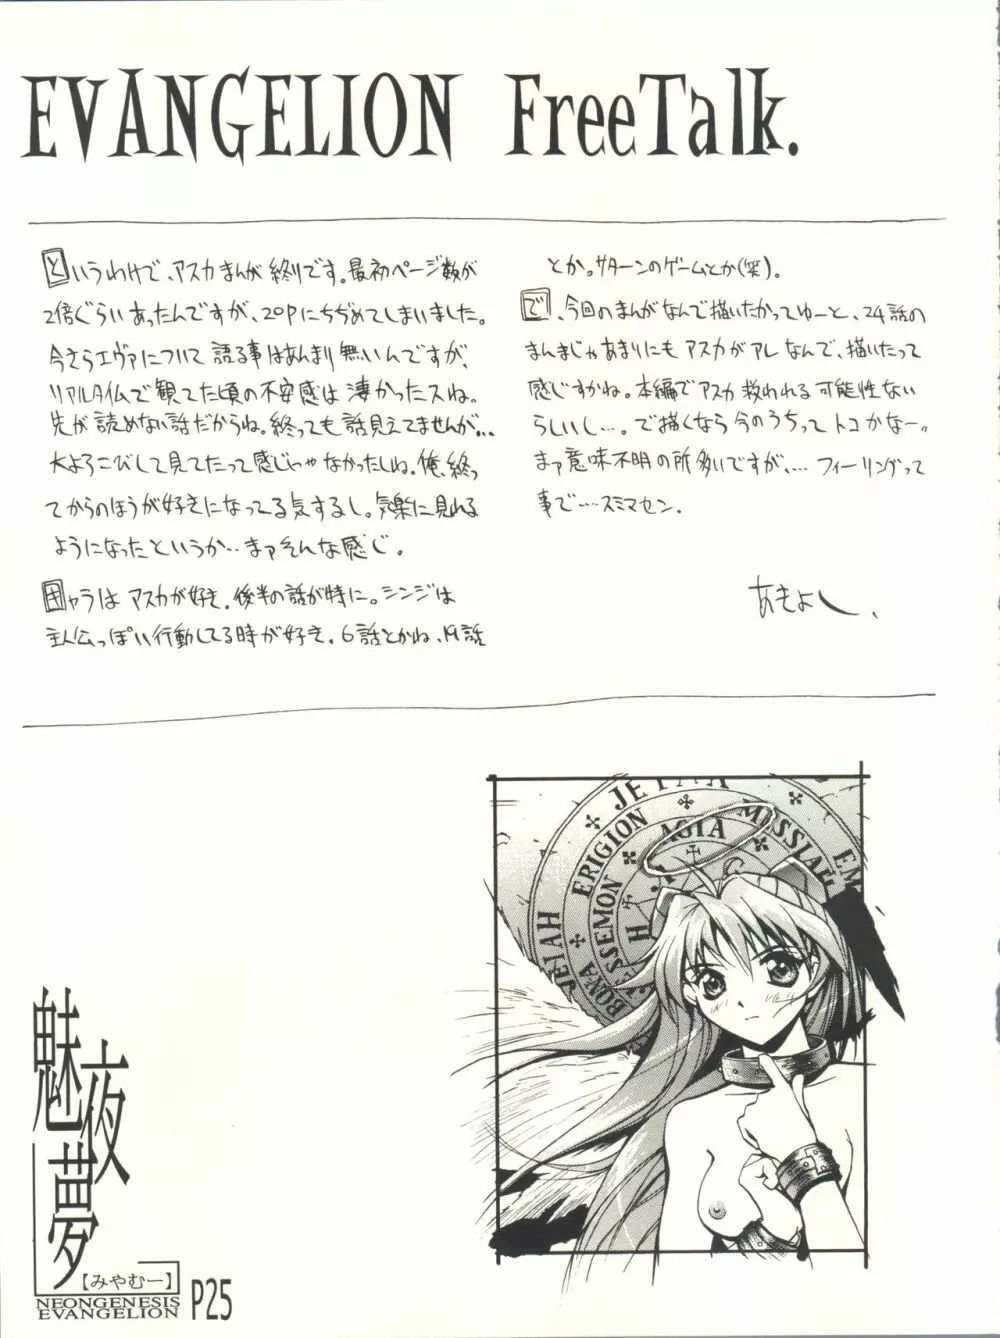 EVANGELION FreeTalk.
というわけで、アスカまんが終りです。最初ページ数が
2倍ぐらいあったんですが、20Pにちぢめてしまいました。
今さらエヴァについて語る事はあんまり無いんですが、
リアルタイムで観てた頃の不安感は凄かったスね。
先が読めない話だからね。終っても話見えてませんが…
大よろこびして見てたって感じじゃなかったしね。俺、終っ
てからのほうが好きになってる気するし。気楽に見れる
ようになったというか…まァそんな感じ。
キャラはアスカが好き。後半の話が特に。シンジは
主人公っぽい行動してる時が好き。6話とかね、19話
とか。サターンのゲームとか(笑)。
で、今回のまんがなんで描いたかってゆーと、24話の
まんまじゃあまりにもアスカがアレなんで、描いたって
感じすかね。本編でアスカ救われる可能性ない
らしいし…。で描くなら今のうちってトコかなー。
まァ意味不明の所多いですが、…フィーリングって
事で……スミマセン.
あきよし、
JEIAH
ERIGION
AGIA
MESSIAH
EM
JEIAH
BONA
ESSEMON
H
魅夜夢
【みやむー】
NEONGENESIS
EVANGELION
P25